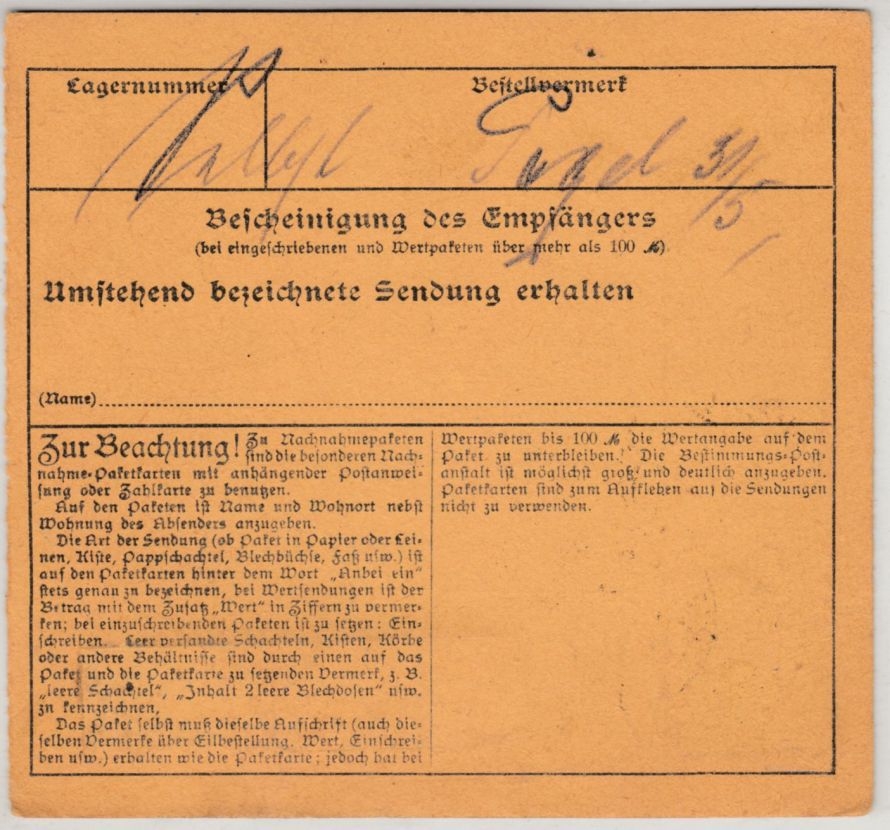 Lagernummer
Bestellvermerk
31/5
Bescheinigung des Empfängers
(bei eingeschriebenen und Wertpaketen über mehr als 100 ℳ).
Umstehend bezeichnete Sendung erhalten
(Name)
Zur Beachtung! Zu Nachnahmepaketen
sind die besonderen Nach-
nahme-Paketkarten mit anhängender Postanwei-
sung oder Zahlkarte zu benutzen.
Auf den Paketen ist Name und Wohnort nebst
Wohnung des Absenders anzugeben.
Die Art der Sendung (ob Paket in Papier oder Lei-
nen, Kiste, Pappschachtel, Blechbüchse, Faß usw.) ist
auf den Paketkarten hinter dem Wort „Anbei ein“
stets genau zu bezeichnen, bei Wertsendungen ist der
Betrag mit dem Zusatz „Wert“ in Ziffern zu vermer-
ken; bei einzuschreibenden Paketen ist zu setzen: Ein-
schreiben. Leer versandte Schachteln, Kisten, Körbe
oder andere Behältnisse sind durch einen auf das
Paket und die Paketkarte zu setzenden Vermerk, z. B.
„leere Schachtel“, „Inhalt 2 leere Blechdosen“ usw.
zu kennzeichnen.
Das Paket selbst muß dieselbe Aufschrift (auch die-
selben Vermerke über Eilbestellung, Wert, Einschrei-
ben usw.) erhalten wie die Paketkarte; jedoch hat bei
Wertpaketen bis 100 ℳ die Wertangabe auf dem
Paket zu unterbleiben. Die Bestimmungs-Post-
anstalt ist möglichst groß und deutlich anzugeben.
Paketkarten sind zum Aufkleben auf die Sendungen
nicht zu verwenden.